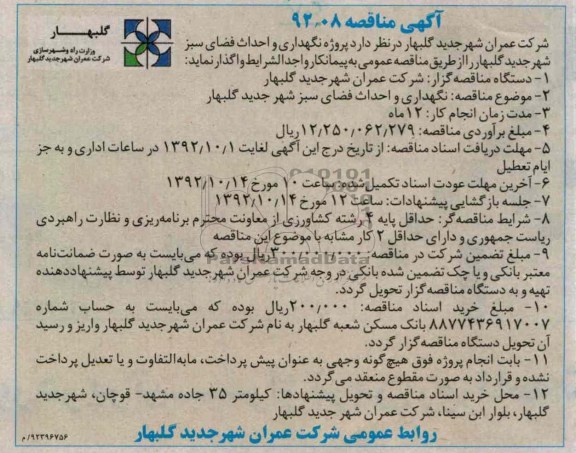 آگهی مناقصه ۹۲۰۰۸
گلبهار
وزارت راه و شهرسازی
شرکت عمران شهر جدید گلبهار
شرکت عمران شهر جدید گلبهار در نظر دارد پروژه نگهداری و احداث فضای سبز
شهر جدید گلبهار را از طریق مناقصه عمومی به پیمانکار واجد الشرایط واگذار نماید:
۱- دستگاه مناقصه گزار: شرکت عمران شهر جدید گلبهار
۲- موضوع مناقصه: نگهداری و احداث فضای سبز شهر جدید گلبهار
۳- مدت زمان انجام کار: ۱۲ ماه
۴- مبلغ برآوردی مناقصه: ۱۲,۲۵۰,۰۶۲,۲۷۹ ریال
۵- مهلت دریافت اسناد مناقصه: از تاریخ درج این آگهی لغایت ۱۳۹۲,۱۰,۱ در ساعات اداری و به جز
ایام تعطیل
۶- آخرین مهلت عودت اسناد تکمیل شده: ساعت ۱۰ مورخ ۱۳۹۲,۱۰,۱۴
۷- جلسه بازگشایی پیشنهادات: ساعت ۱۲ مورخ ۱۳۹۲,۱۰,۱۴
۸- شرایط مناقصه گر: حداقل پایه ۴ رشته کشاورزی از معاونت محترم برنامه ریزی و نظارت راهبردی
ریاست جمهوری و دارای حداقل ۲ کار مشابه با موضوع این مناقصه
۹- مبلغ تضمین شرکت در مناقصه: ریال بوده که می بایست به صورت ضمانت نامه
معتبر بانکی و یا چک تضمین شده بانکی در وجه شرکت عمران شهر جدید گلبهار توسط پیشنهاددهنده
تهیه و به دستگاه مناقصه گزار تحویل گردد.
۱۰- مبلغ خرید اسناد مناقصه: ۲۰۰,۰۰۰ ریال بوده که می بایست به حساب شماره
۸۸۷۷۴۳۶۹۱۷۰۰۷ بانک مسکن شعبه گلبهار به نام شرکت عمران شهر جدید گلبهار واریز و رسید
آن تحویل دستگاه مناقصه گزار گردد.
۱۱- بابت انجام پروژه فوق هیچ گونه وجهی به عنوان پیش پرداخت، مابه التفاوت و یا تعدیل پرداخت
نشده و قرارداد به صورت مقطوع منعقد می گردد.
۱۲- محل خرید اسناد مناقصه و تحویل پیشنهادها: کیلومتر ۳۵ جاده مشهد- قوچان، شهر جدید
گلبهار، بلوار ابن سینا، شرکت عمران شهر جدید گلبهار
روابط عمومی شرکت عمران شهر جدید گلبهار
۹۲۳۹۶۷۵۶/م